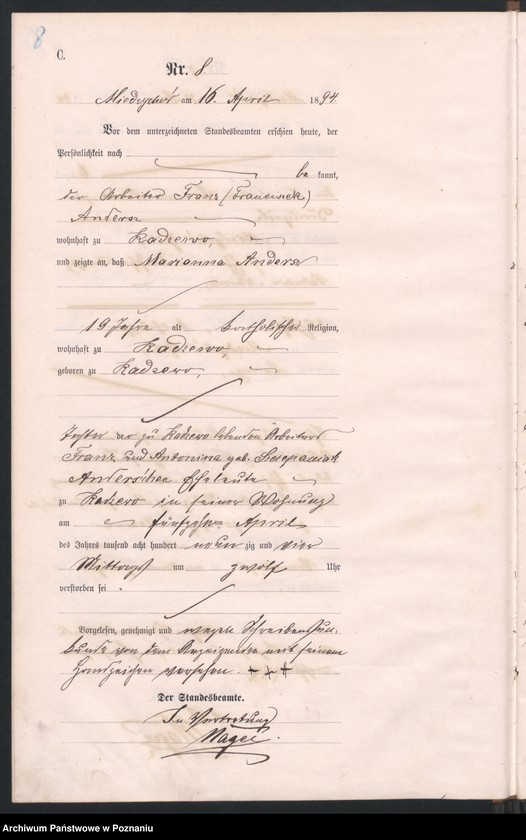 8
C.
Nr. 8.
Miedzychód am 16. April 1894.
Vor dem unterzeichneten Standesbeamten erschien heute, der
Persönlichkeit nach
be kannt,
der Arbeiter Franz (Franciszek)
Andersz
wohnhaft zu Kadzewo,
und zeigte an, daß Marianna Andersz
19 Jahre alt katholischer Religion,
wohnhaft zu Kadzewo,
geboren zu Kadzewo,
Tochter der zu Kadzewo lebenden Arbeiters
Franz und Antonina geb. Szczepaniak
Andersz'schen Eheleute
zu Kadzewo in seiner Wohnung
am fünfzehn April
des Jahres tausend acht hundert neun zig und vier
Mittags um zwölf Uhr
verstorben sei .
Vorgelesen, genehmigt und wegen Schreibensun-
kunde von dem Anzeigenden mit seinem
Handzeichen versehen. +++
Der Standesbeamte.
In Vertretung
Archiwum Państwowe w Poznaniu